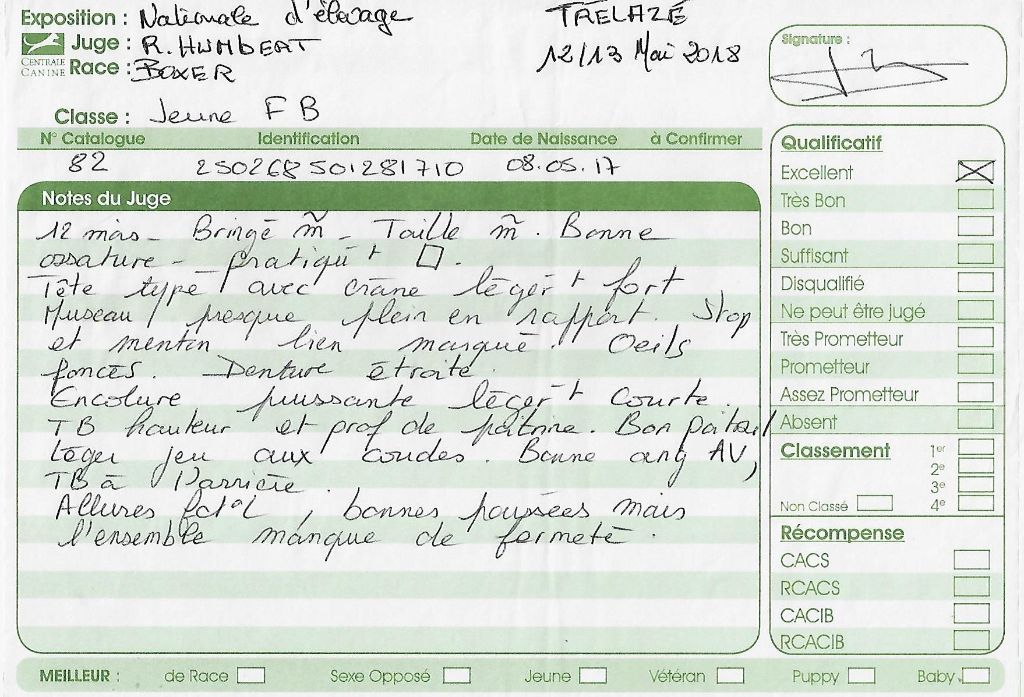 Exposition : Nationale d'élevage TRELAZÉ
CENTRALE CANINE
Juge : R. HUMBERT 12/13 Mai 2018
Race : BOXER
Signature :
Classe : Jeune F B
N° Catalogue Identification Date de Naissance à Confirmer
82 250268501281710 08.05.17
Notes du Juge
12 mois - Bringé m̃ - Taille m̃. Bonne
ossature - pratiqut □.
Tête type avec crâne légert fort
Museau presque plein en rapport. Stop
et menton bien marqué. Oeils
foncés. Denture étroite.
Encolure puissante légert courte.
TB hauteur et prof de poitrine. Bon poitrail
Léger jeu aux coudes. Bonne ang AV,
TB à l'arrière.
Allures fctel, bonnes poussées mais
l'ensemble manque de fermeté.
Qualificatif
Excellent
Très Bon
Bon
Suffisant
Disqualifié
Ne peut être jugé
Très Prometteur
Prometteur
Assez Prometteur
Absent
Classement 1er
2e
3e
Non Classé 4e
Récompense
CACS
RCACS
CACIB
RCACIB
MEILLEUR : de Race Sexe Opposé Jeune Vétéran Puppy Baby